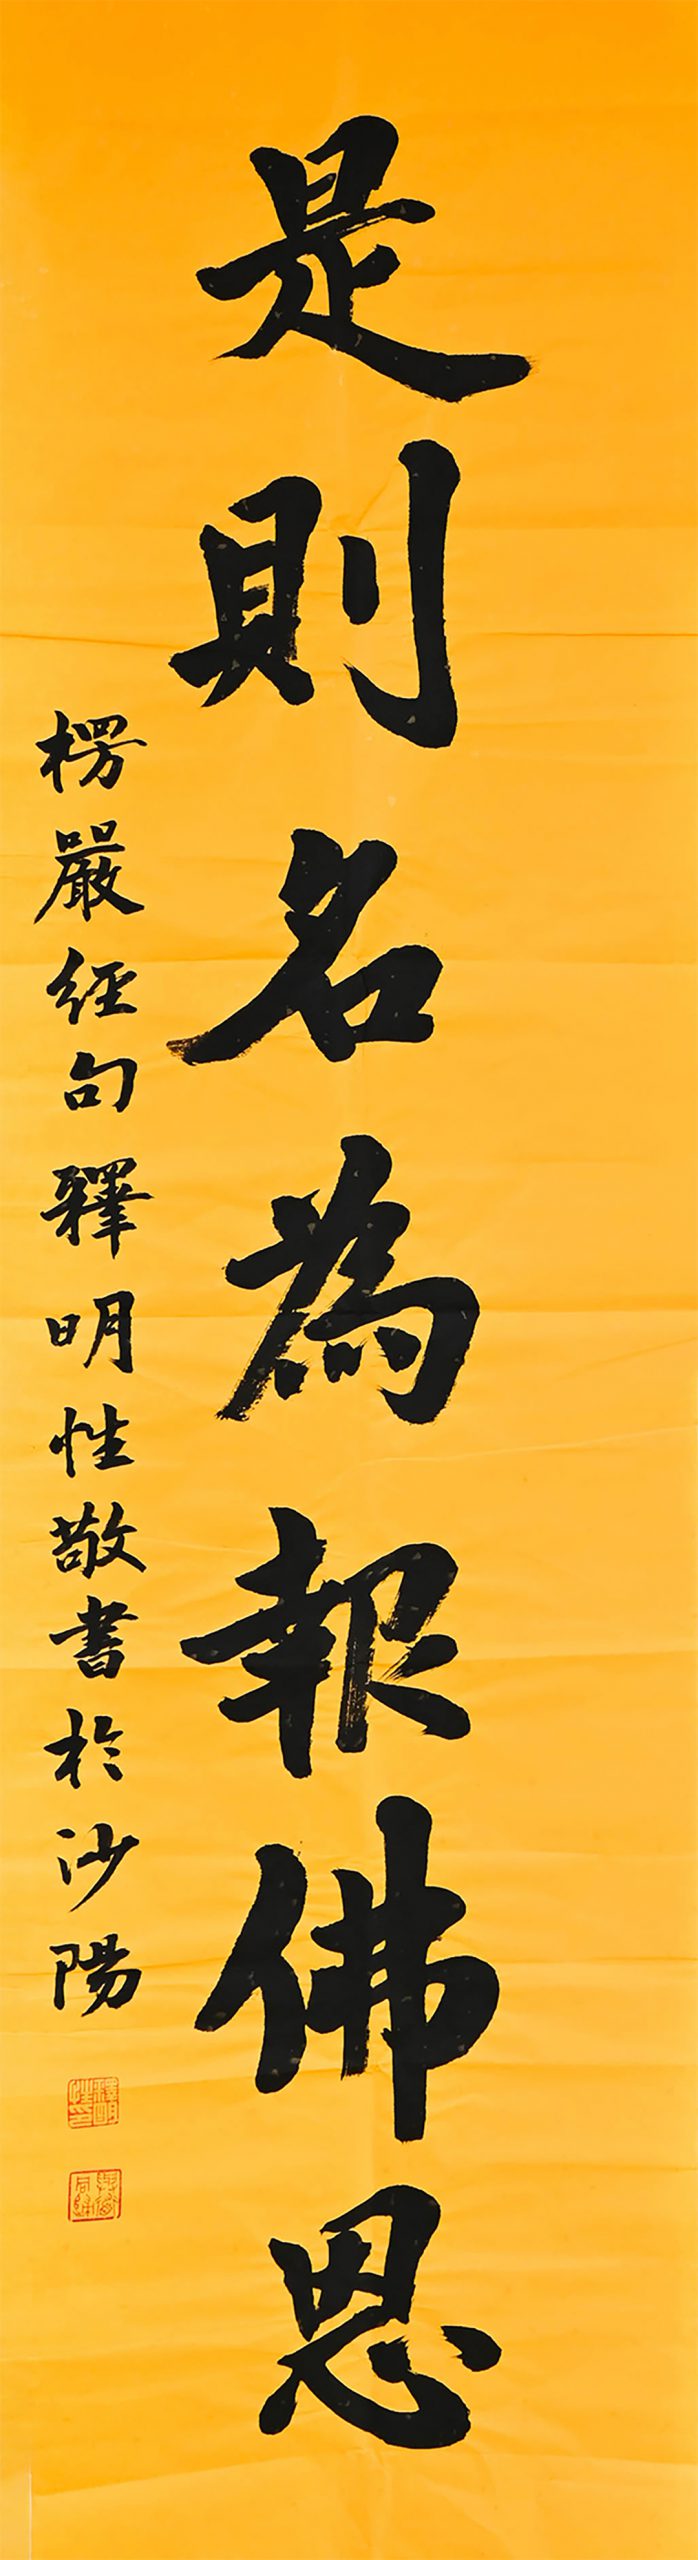 是則名為報佛恩
楞嚴經句釋明性敬書於沙陽